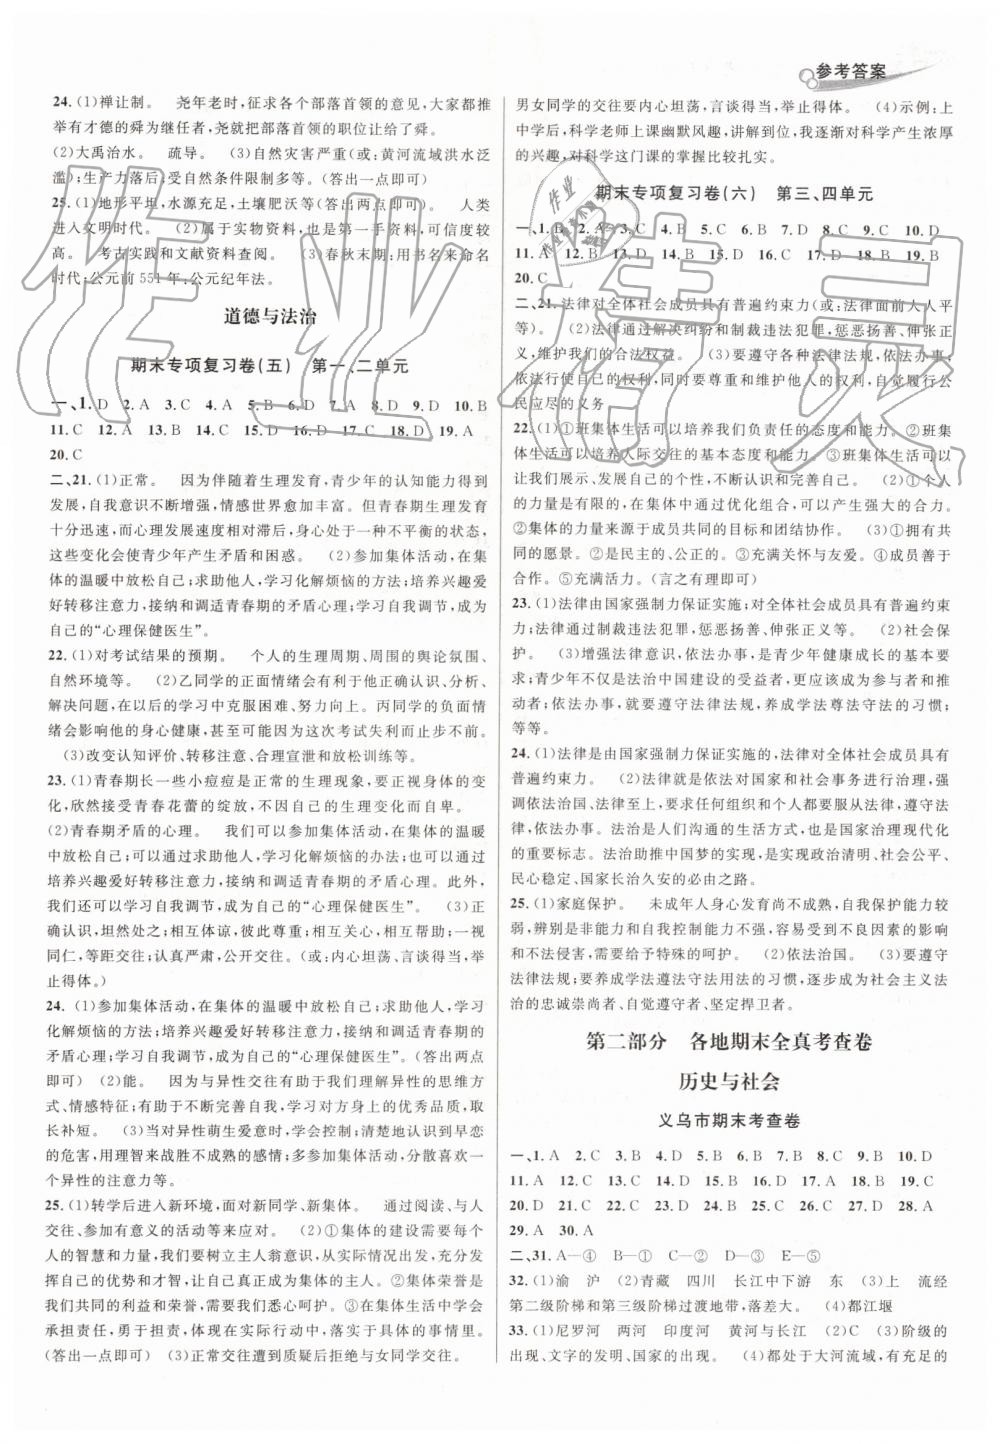 参考答案
24.(1)禅让制。 尧年老时,征求各个部落首领的意见,大家都推
举有才德的舜为继任者,尧就把部落首领的职位让给了舜。
(2)大禹治水。 疏导。 (3)自然灾害严重(或:黄河流域洪水泛
滥);生产力落后,受自然条件限制多等。(答出一点即可)
25.(1)地形平坦,水源充足,土壤肥沃等(答出两点即可)。 人类
进入文明时代。 (2)属于实物资料,也是第一手资料,可信度较
高。 考古实践和文献资料查阅。 (3)春秋末期;用书名来命名
时代;公元前 551 年,公元纪年法。
道德与法治
期末专项复习卷(五) 第一、二单元
一、1.D 2.A 3.C 4.A 5.B 6.D 7.A 8.D 9.D 10.B
11.C 12.A 13.B 14.C 15.D 16.D 17.C 18.D 19.A
20.C
二、21.(1)正常。 因为伴随着生理发育,青少年的认知能力得到
发展,自我意识不断增强,情感世界愈加丰富。但青春期生理发育
十分迅速,而心理发展速度相对滞后,身心处于一种不平衡的状态,
这些变化会使青少年产生矛盾和困惑。 (2)参加集体活动,在集
体的温暖中放松自己;求助他人,学习化解烦恼的方法;培养兴趣爱
好转移注意力,接纳和调适青春期的矛盾心理;学习自我调节,成为
自己的“心理保健医生”。
22.(1)对考试结果的预期。 个人的生理周期、周围的舆论氛围、
自然环境等。 (2)乙同学的正面情绪会有利于他正确认识、分析、
解决问题,在以后的学习中克服困难、努力向上。丙同学的负面情
绪会影响他的身心健康,甚至可能因为这次考试失利而止步不前。
(3)改变认知评价、转移注意、合理宣泄和放松训练等。
23.(1)青春期长一些小痘痘是正常的生理现象,要正视身体的变
化,欣然接受青春花蕾的绽放,不因自己的生理变化而自卑。
(2)青春期矛盾的心理。 我们可以参加集体活动,在集体的温暖
中放松自己;可以通过求助他人,学习化解烦恼的办法;也可以通过
培养兴趣爱好转移注意力,接纳和调适青春期的矛盾心理。此外,
我们还可以学习自我调节,成为自己的“心理保健医生”。 (3)正
确认识,坦然处之;相互体谅,彼此尊重;相互合作,彼此帮助;一视
同仁,等距交往;认真严肃,公开交往。(或:内心坦荡,言谈得当,举
止得体。)
24.(1)参加集体活动,在集体的温暖中放松自己;求助他人,学习
化解烦恼的方法;培养兴趣爱好转移注意力,接纳和调适青春期的
矛盾心理;学习自我调节,成为自己的“心理保健医生”。(答出两点
即可) (2)能。 因为与异性交往有助于我们理解异性的思维方
式、情感特征;有助于不断完善自我,学习对方身上的优秀品质,取
长补短。 (3)当对异性萌生爱意时,学会控制;清楚地认识到早恋
的危害;用理智来战胜不成熟的感情;多参加集体活动,分散喜欢一
个异性的注意力。(答出一点即可)
25.(1)转学后进入新环境,面对新同学、新集体。 通过阅读、与人
交往、参加有意义的活动等来应对。 (2)①集体的建设需要每个
人的智慧和力量,我们要树立主人翁意识,从实际情况出发,充分发
挥自己的优势和才智,让自己成为集体的主人。②集体荣誉是
我们共同的利益和荣誉,需要我们悉心呵护。③在集体生活中学会
承担责任,勇于担责,体现在实际行动中,落实于具体的事情里。
(答出一点即可) (3)正常交往遭到质疑后拒绝与女同学交往。
男女同学的交往要内心坦荡,言谈得当,举止得体。 (4)示例:上
中学后,科学老师上课幽默风趣,讲解到位,我逐渐对科学产生浓厚
的兴趣,对科学这门课的掌握比较扎实。
期末专项复习卷(六) 第三、四单元
一、1.B 2.A 3.D 4.B 5.C 6.C 7.D 8.C 9.C 10.D
11.A 12.D 13.A 14.C 15.B 16.D 17.D 18.D 19.C
20.C
二、21.(1)法律对全体社会成员具有普遍约束力(或:法律面前人人平
等)。 (2)法律通过解决纠纷和制裁违法犯罪,惩恶扬善、伸张正
义,维护我们的合法权益。 (3)要遵守各种法律法规,依法办事;
依法行使自己的权利,同时要尊重和维护他人的权利,自觉履行公
民应尽的义务。
22.(1)①班集体生活可以培养我们负责任的态度和能力。②班集
体生活可以培养人际交往的基本态度和能力。③班集体生活可以
让我们发展自己的个性,不断认识和完善自己。 (2)①一个人
的力量是有限的,在集体中通过优化组合,可以产生强大的合力。
②集体的力量来源于成员共同的目标和团结协作。 (3)①拥有共
同的愿景。②是民主的、公正的。③充满关怀与友爱。④成员善于
合作。⑤充满活力。(言之有理即可)
23.(1)法律由国家强制力保证实施;对全体社会成员具有普遍约束
力;法律通过制裁违法犯罪,惩恶扬善、伸张正义等。 (2)社会保
护。 (3)增强法律意识,依法办事,是青少年健康成长的基本要
求;青少年不仅是法治中国建设的受益者,更应该成为参与者和推
动者,我们要遵守法律法规,养成学法尊法守法用法的习惯;
等等。
24.(1)法律是由国家强制力保证实施的,法律对全体社会成员具有
普遍约束力。 (2)法治就是依法对国家和社会事务进行治理,强
调依法治国、法律至上,要求任何组织和个人都要服从法律、遵守法
律、依法办事。法治是人们沟通的生活方式,也是国家治理现代化
的重要标志。法治助推中国梦的实现,是实现政治清明、社会公平、
民心稳定、国家长治久安的必由之路。
25.(1)家庭保护。 未成年人身心发育尚不成熟,自我保护能力较
弱,辨别是非能力和自我控制能力不强,容易受到不良因素的影响
和不法侵害,需要给予特殊的呵护。 (2)依法治国。 (3)要遵守
法律法规;要养成学法遵法守法用法的习惯,逐步成为社会主义法
治的忠诚崇尚者、自觉遵守者、坚定捍卫者。
第二部分 各地期末全真考查卷
历史与社会
义乌市期末考查卷
一、1.A 2.C 3.C 4.D 5.B 6.D 7.B 8.C 9.B 10.D
11.A 12.C 13.C 14.B 15.D 16.B 17.A 18.C 19.C
20.D 21.C 22.C 23.C 24.B 25.D 26.D 27.C 28.A
29.A 30.A
二、31.A—④ B—① C—② D—③ E—⑤
32.(1)渝 沪 (2)青藏 四川 长江中下游 东 (3)上 流经
第二级阶梯和第三级阶梯过渡地带,落差大。 (4)都江堰
33.(1)尼罗河 两河 印度河 黄河与长江 (2)C (3)阶级的
出现、文字的发明、国家的出现。 (4)都处于大河流域,有充足的
作业精灵